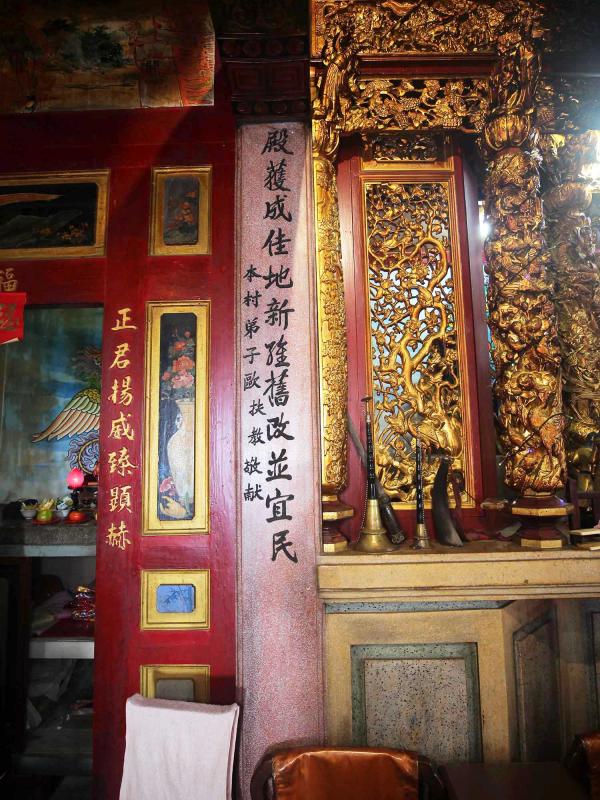 殿蒦成佳地新經舊改並宜民
本村弟子歐扶教敬献
正君揚威臻顯赫
福